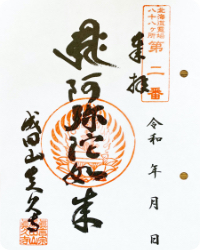 北海道霊場
八十八ヶ所
第二番
奉拝
令和 年 月 日
阿弥陀如来
成田山真久寺